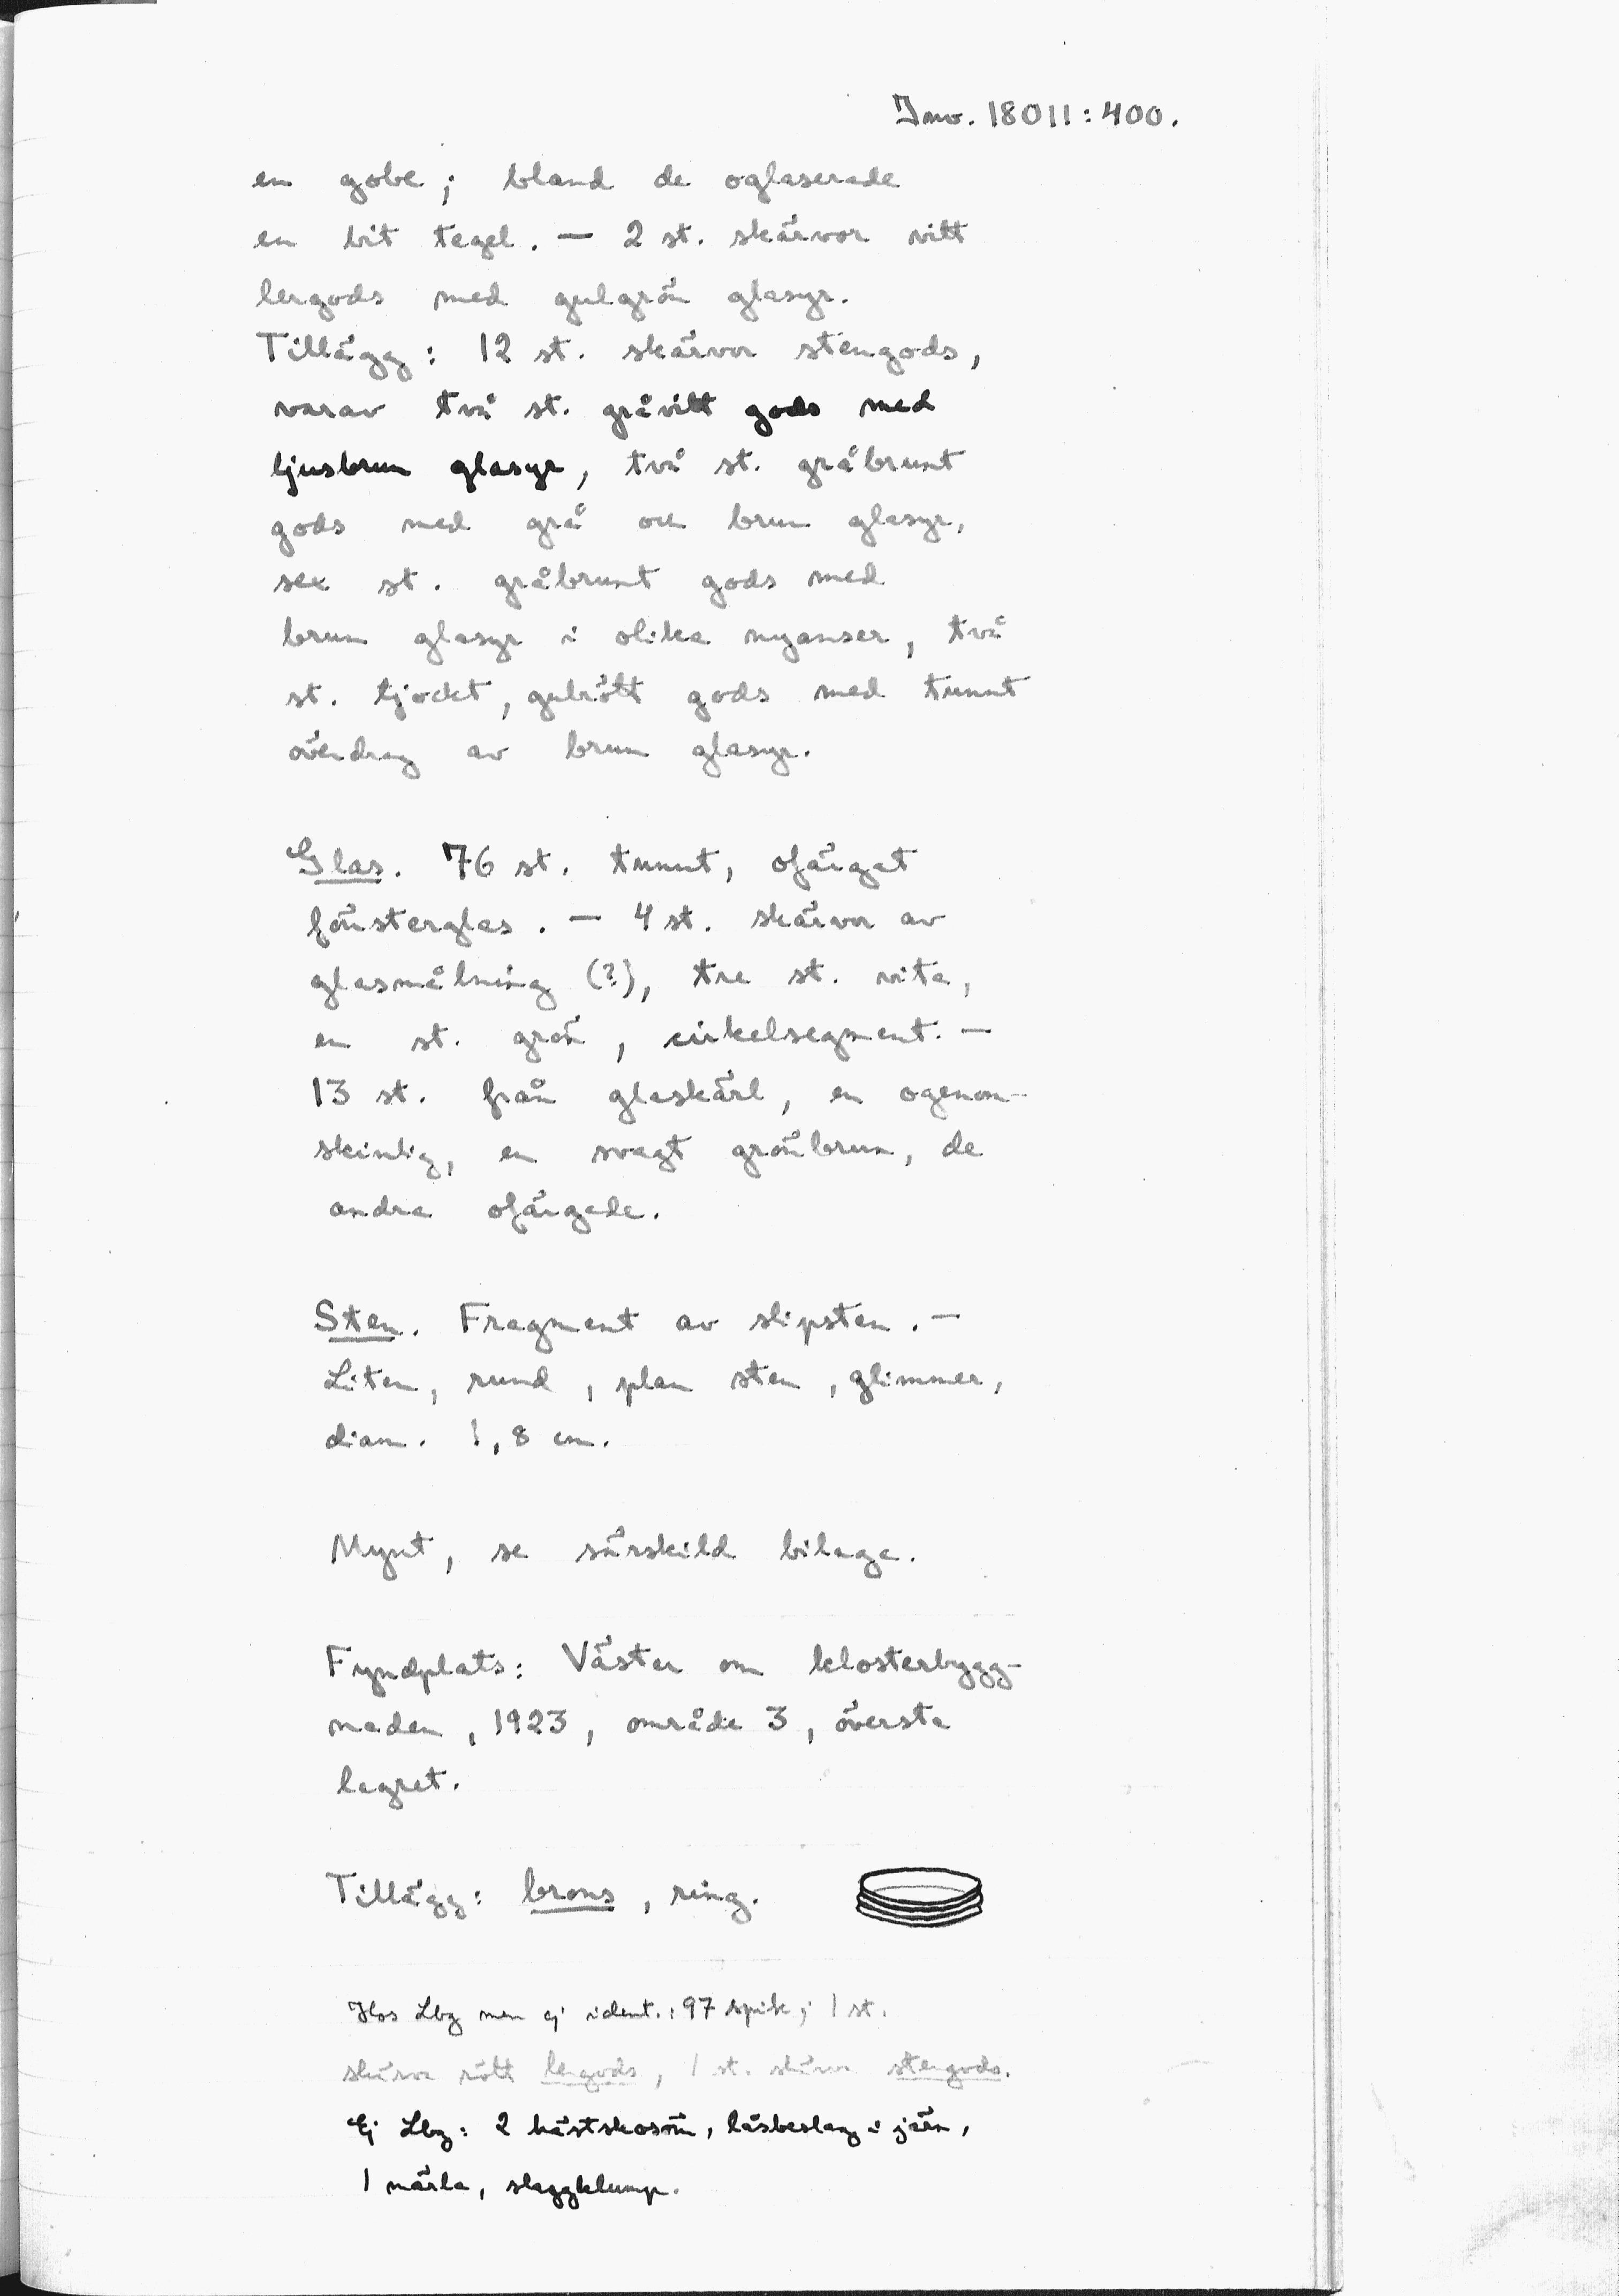 Inv. 18011:400.
en gobe; bland de oglaserade
en bit tegel. — 2 st. skärvor vitt
lergods med gulgrön glasyr.
Tillägg: 12 st. skärvor stengods,
varav två st. gråvitt gods med
ljusbrun glasyr, två st. gråbrunt
gods med grå och brun glasyr,
sex st. gråbrunt gods med
brun glasyr i olika nyanser, två
st. tjockt, gulrött gods med tunnt
överdrag av brun glasyr.
Glas. 76 st. tunnt, ofärgat
fönsterglas. — 4 st. skärvor av
glasmålning (?), tre st. vita,
en st. grön, cirkelsegment. —
13 st. från glaskärl, en ogenom-
skinlig, en svagt grönbrun, de
andra ofärgade.
Sten. Fragment av slipsten. —
Liten, rund, plan sten, glimmer,
diam. 1,8 cm.
Mynt, se särskild bilaga.
Fyndplats: Väster om klosterbygg-
naden, 1923, område 3, översta
lagret.
Tillägg: brons, ring.
Hos Lbg men ej ident.: 97 spik; 1 st.
skärva rött lergods, 1 st. skärva stengods.
Ej Lbg: 2 hästskosöm, låsbeslag i järn,
1 märla, slaggklump.